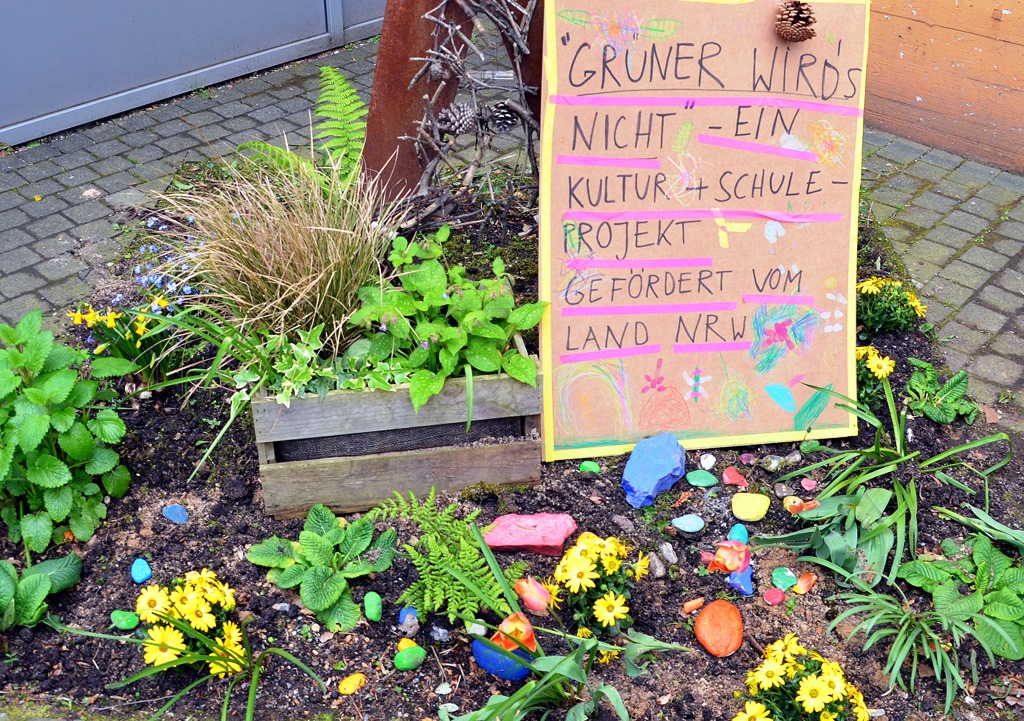 "GRÜNER WIRD'S
NICHT" - EIN
KULTUR + SCHULE -
PROJEKT
GEFÖRDERT VOM
LAND NRW